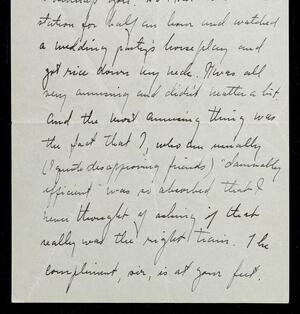 station for half an hour and watched
a wedding party's horseplay and
got rice down my neck. It was all
very amusing and didn't matter a bit.
And the most amusing thing was
the fact that I, who am usually
(I quote disapproving friends) "damnably
efficient" was so absorbed that I
never thought of asking if that
really was the right train. The
compliment, sir, is at your feet.